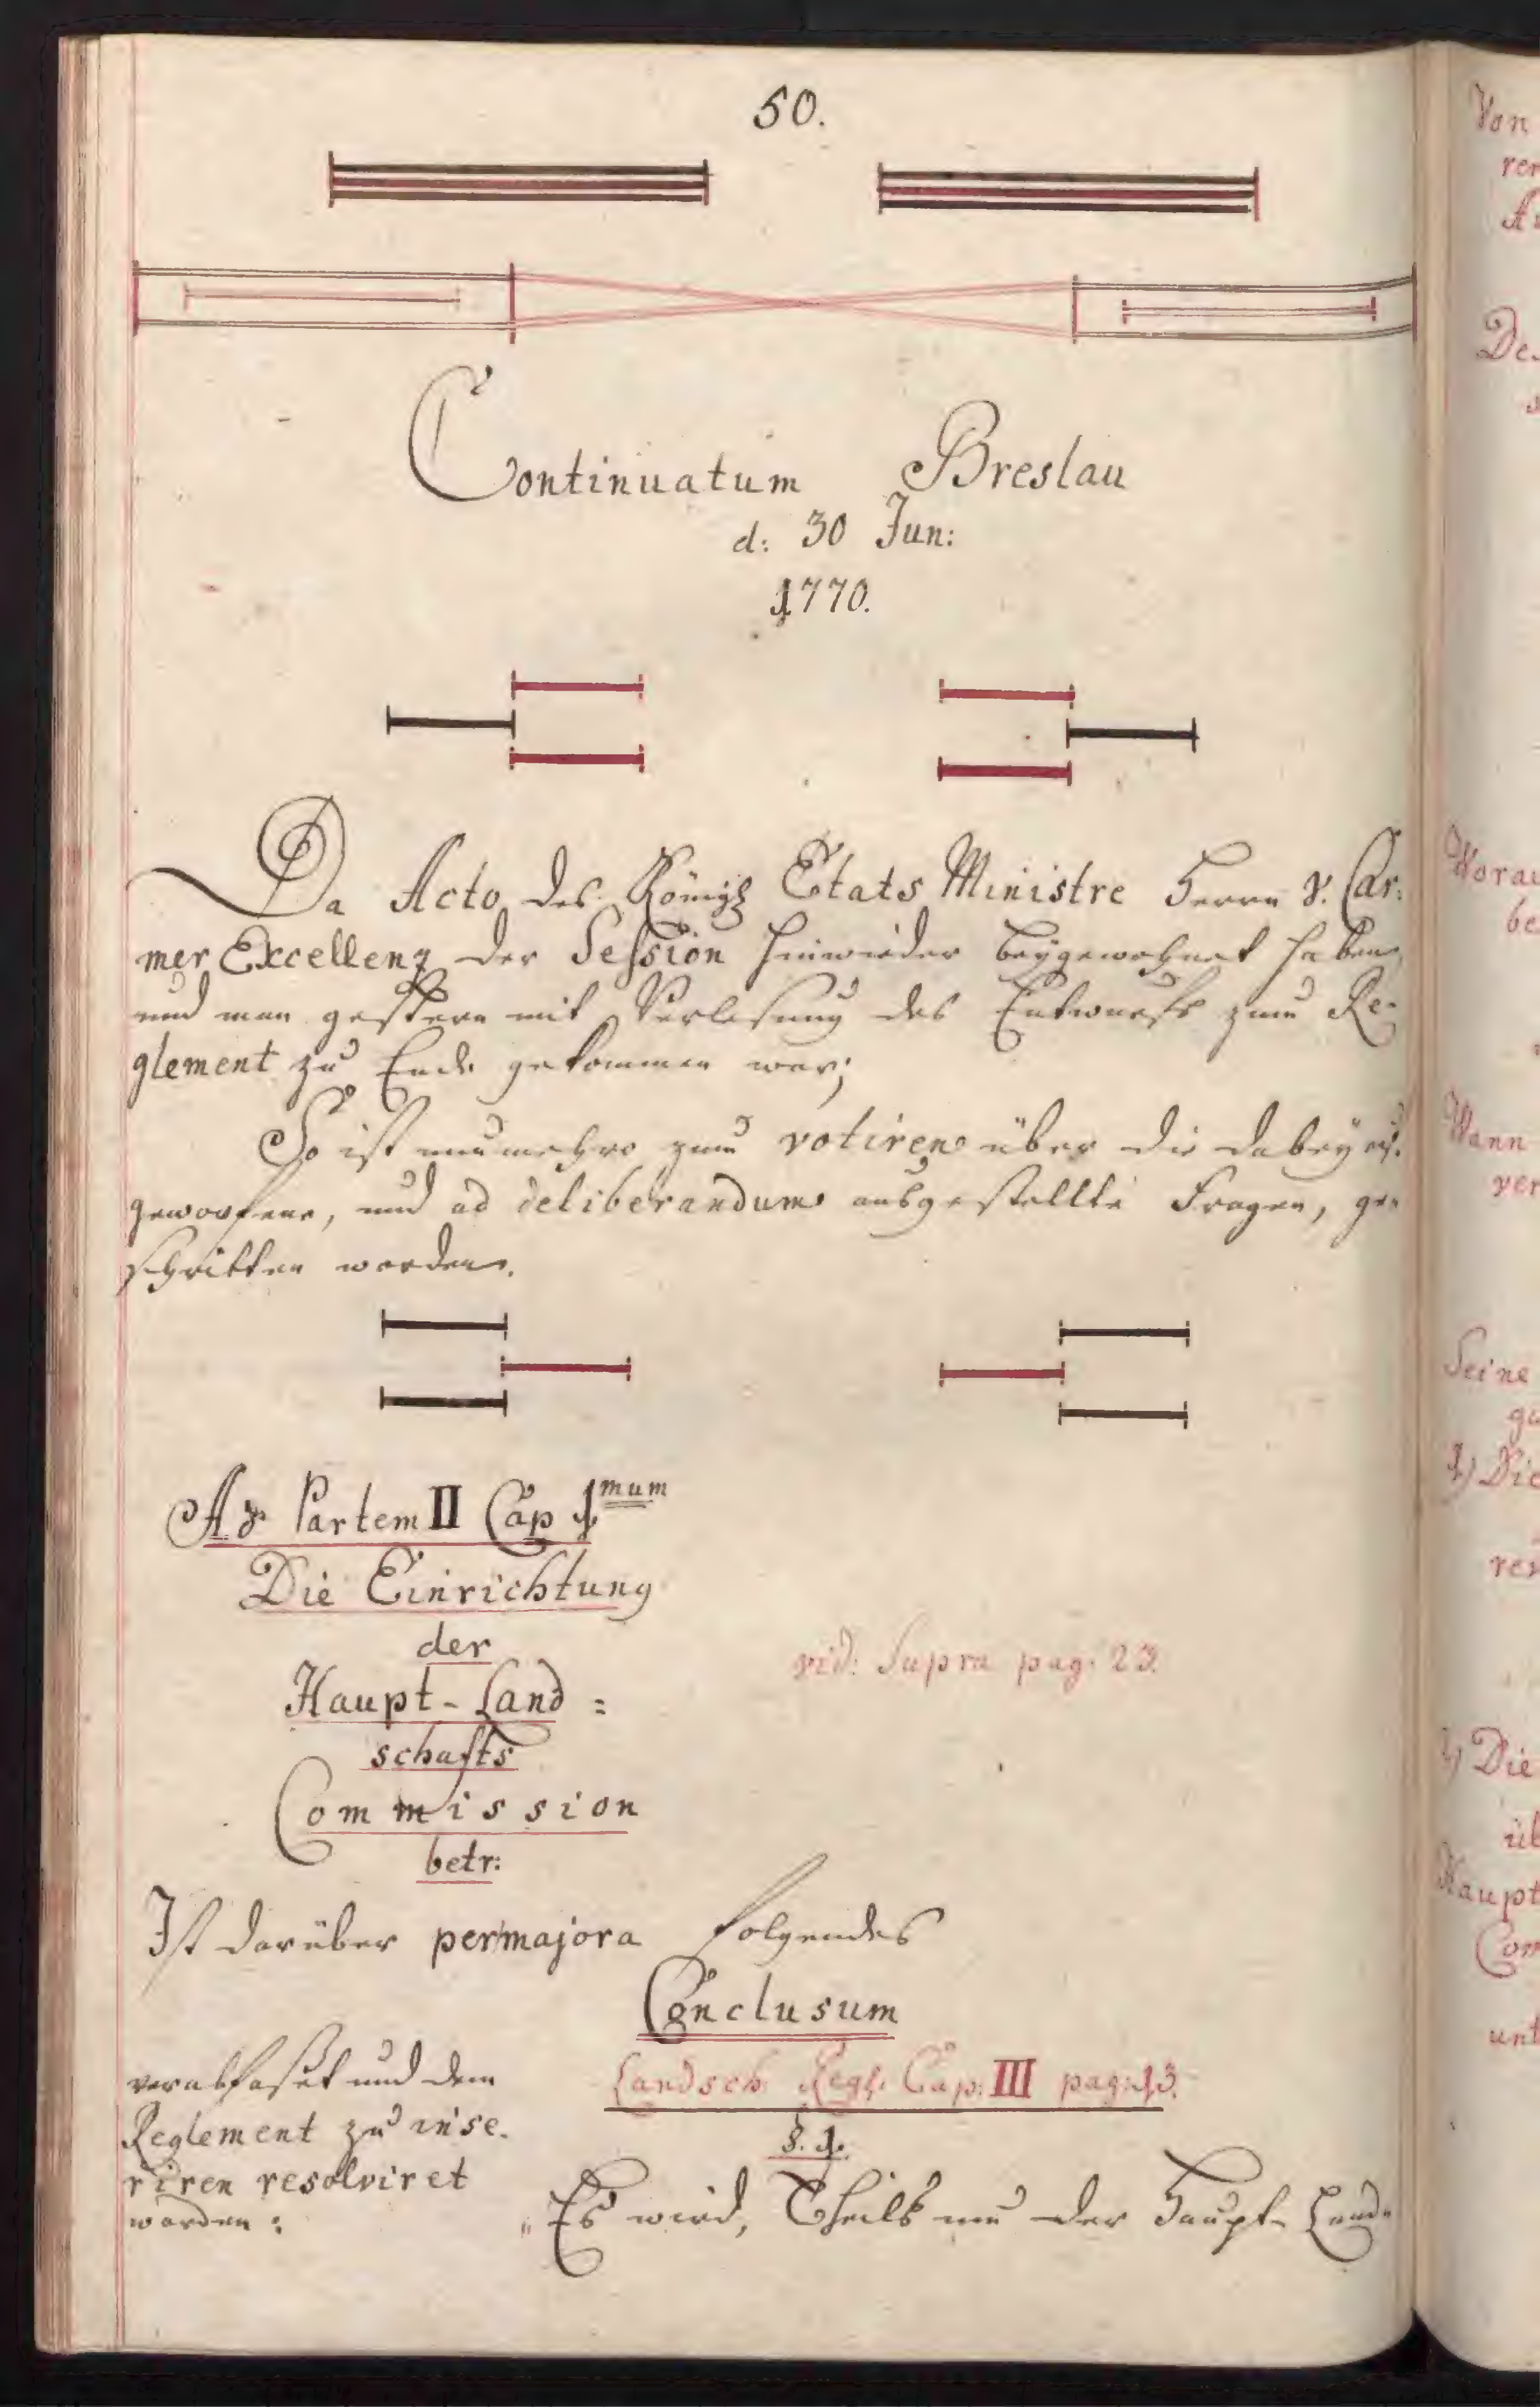 50.
Continuatum Breslau
d: 30 Jun:
1770.
Da Acto des Königl Etats Ministre Herrn v. Car:
mer Excellenz der Session hinwieder beygewohnet haben,
und man gestern mit Verlesung des Entwurfs zum Re-
glement zu Ende gekommen war;
So ist nunmehro zum votiren über die dabey auf-
geworfene, und ad deliberandum ausgestellte Fragen, ge-
schritten worden.
Ad Partem II Cap 1mum
Die Einrichtung
der
Haupt-Land=
schafts
Commission
betr:
vid: Supra pag: 23.
Ist darüber per majora folgendes
Conclusum
verabfaßet und dem
Reglement zu inse-
riren resolviret
worden:
Landsch: Regl. Cap: III pag: 13.
§. 1.
„Es wird, Theils um der Haupt-Land-
Von
rer
De
Worau
be
Wann
ver
Seine
1) Die
2) Die
üb
Haupt
Com
unt